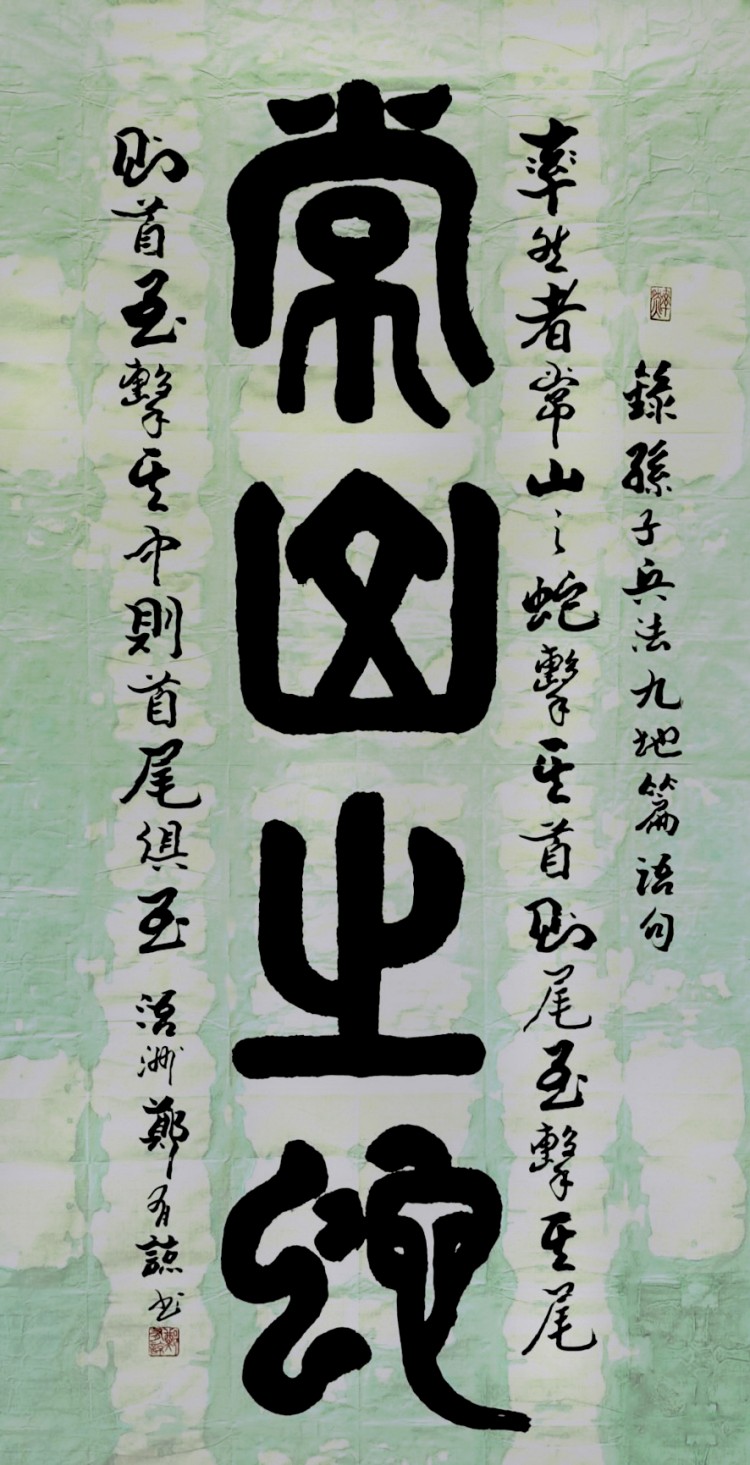 錄孫子兵法九地篇語句
率然者常山之蛇擊其首則尾至擊其尾
常山之蛇
則首至擊其中則首尾俱至
鄭有諒书